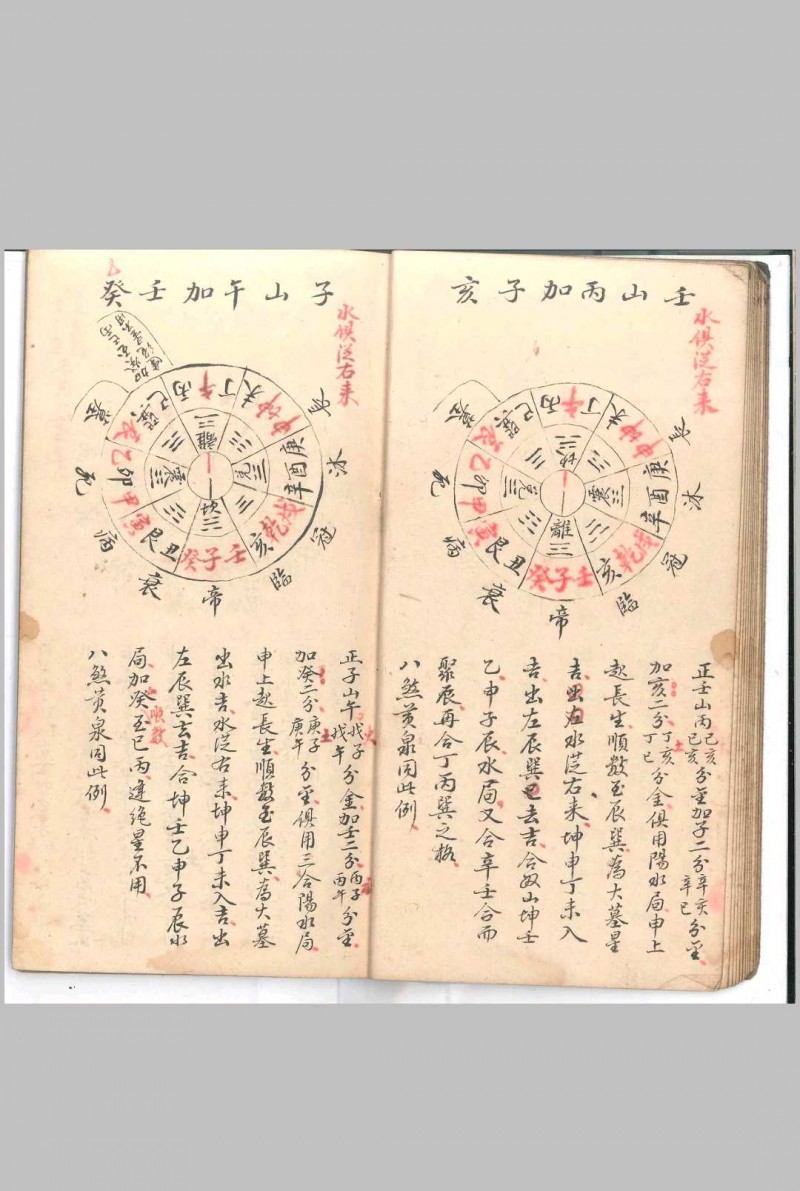 壬山丙加子亥
水俱從右来
正壬山丙己亥己亥分金加子二分辛亥辛巳分金
加亥二分丁亥丁巳分金俱用陽水局申上
起長生順数至辰巽為大墓星
吉出左水從右来坤申丁未入
吉出左辰巽巳去吉合奴山坤壬
乙申子辰水局又合辛壬合而
聚辰再合丁丙巽之格
八煞黄泉同此例
丁午丙
巳巽辰
乙卯甲
寅艮丑
癸子壬
亥乾戌
辛酉庚
申坤未
離
震
兑
坎
長
沐
冠
臨
帝
衰
病
死
墓
子山午加壬癸
水俱從右来
正子山午戊子戊午分金加壬二分丙子丙午分金
加癸二分庚子庚午分金俱用三合陽水局
申上起長生順数至辰巽為大墓
出水吉水從右来坤申丁未入吉出
左辰巽去吉合坤壬乙申子辰水
局加癸至巳丙逢絶星不用
順数
八煞黄泉同此例
丁午丙
巳巽辰
乙卯甲
寅艮丑
癸子壬
亥乾戌
辛酉庚
申坤未
離
震
兑
坎
長
沐
冠
臨
帝
衰
病
死
墓